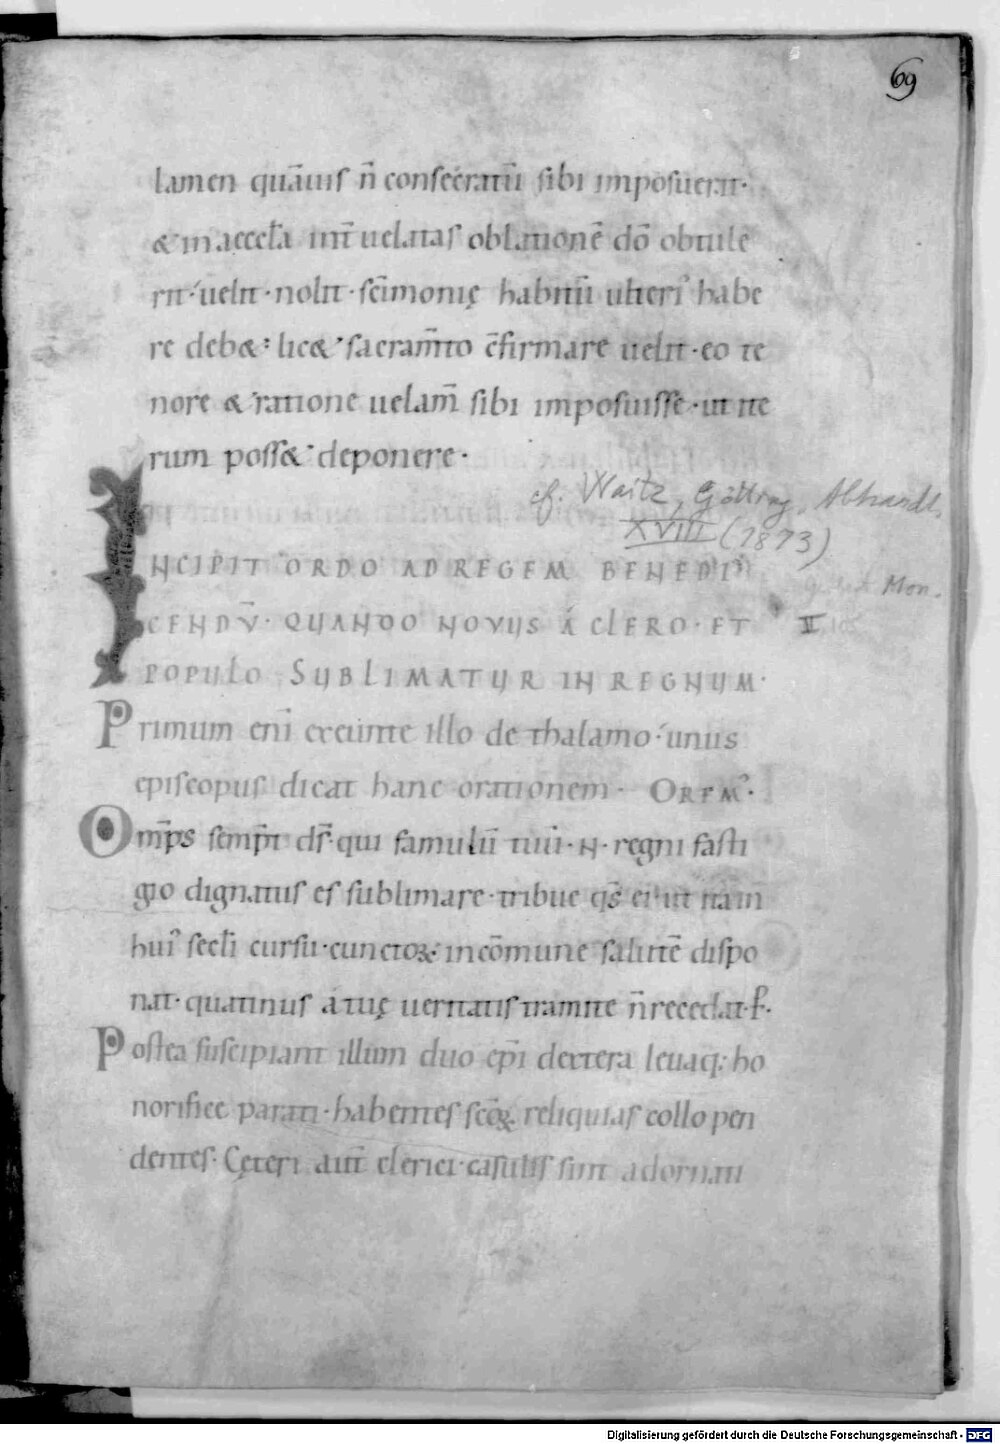 69
lamen quāuis n̄ consecratū sibi imposuerit·
& in aeccl̄a int̄ uelatas oblationē dō obtule
rit· uelit· nolit· sc̄imonię habitū ulteri' habe
re deb&· lic& sacram̄to c̄firmare uelit· eo te
nore & ratione uelam̄ sibi imposuisse· ut ite
rum poss& deponere·
cf. Waitz, Götting. Abhandl.
XVIII (1873)
INCIPIT ORDO AD REGEM BENEDI
Mon.
CENDV̄· QUANDO NOVUS Á CLERO· ET
II
POPULO SUBLIMATUR IN REGNUM·
Primum eni exeunte illo de thalamo· unus
episcopus dicat hanc orationem· OREM'·
Om̄ps semp̄it ds̄· qui famulū tuū· N· regni fasti
gio dignatus es sublimare· tribue qs̄ ei· ut ita in
hui' secl̄i cursu· cunctoꝝ in cōmune salutē dispo
nat· quatinus á tuę ueritatis tramite n̄ recedat· P̄·
Postea suscipiant illum duo ep̄i dextera leuaq; ho
norifice parati· habentes sc̄oꝝ reliquias collo pen
dentes· Cęteri aut̄ clerici· casulis sint adornati
Digitalisierung gefördert durch die Deutsche Forschungsgemeinschaft - DFG